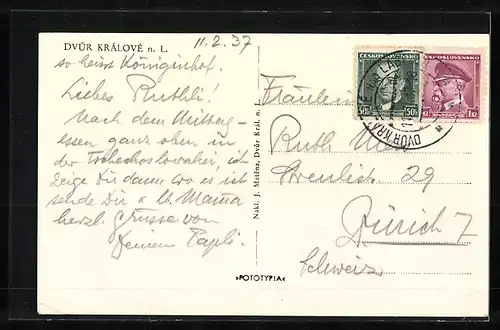 11.2.37
DVŮR KRÁLOVÉ n. L.
so heisst Königinhof.
Liebes Ruthli!
Nach dem Mittag-
essen ganz oben in
der Tschechoslowakei, ich
zeige Dir dann wo es ist
sende Dir & lb. Mama
herzl. Grüsse von
Deinem Papli.
Nákl. J. Matěna, Dvůr Král. n. L.
»FOTOTYPIA«
ČESKOSLOVENSKO
50h 50h
ČESKOSLOVENSKO
1Kč
DVŮR KRÁLOVÉ
Fräulein
Ruth
29
Zürich 7
Schweiz